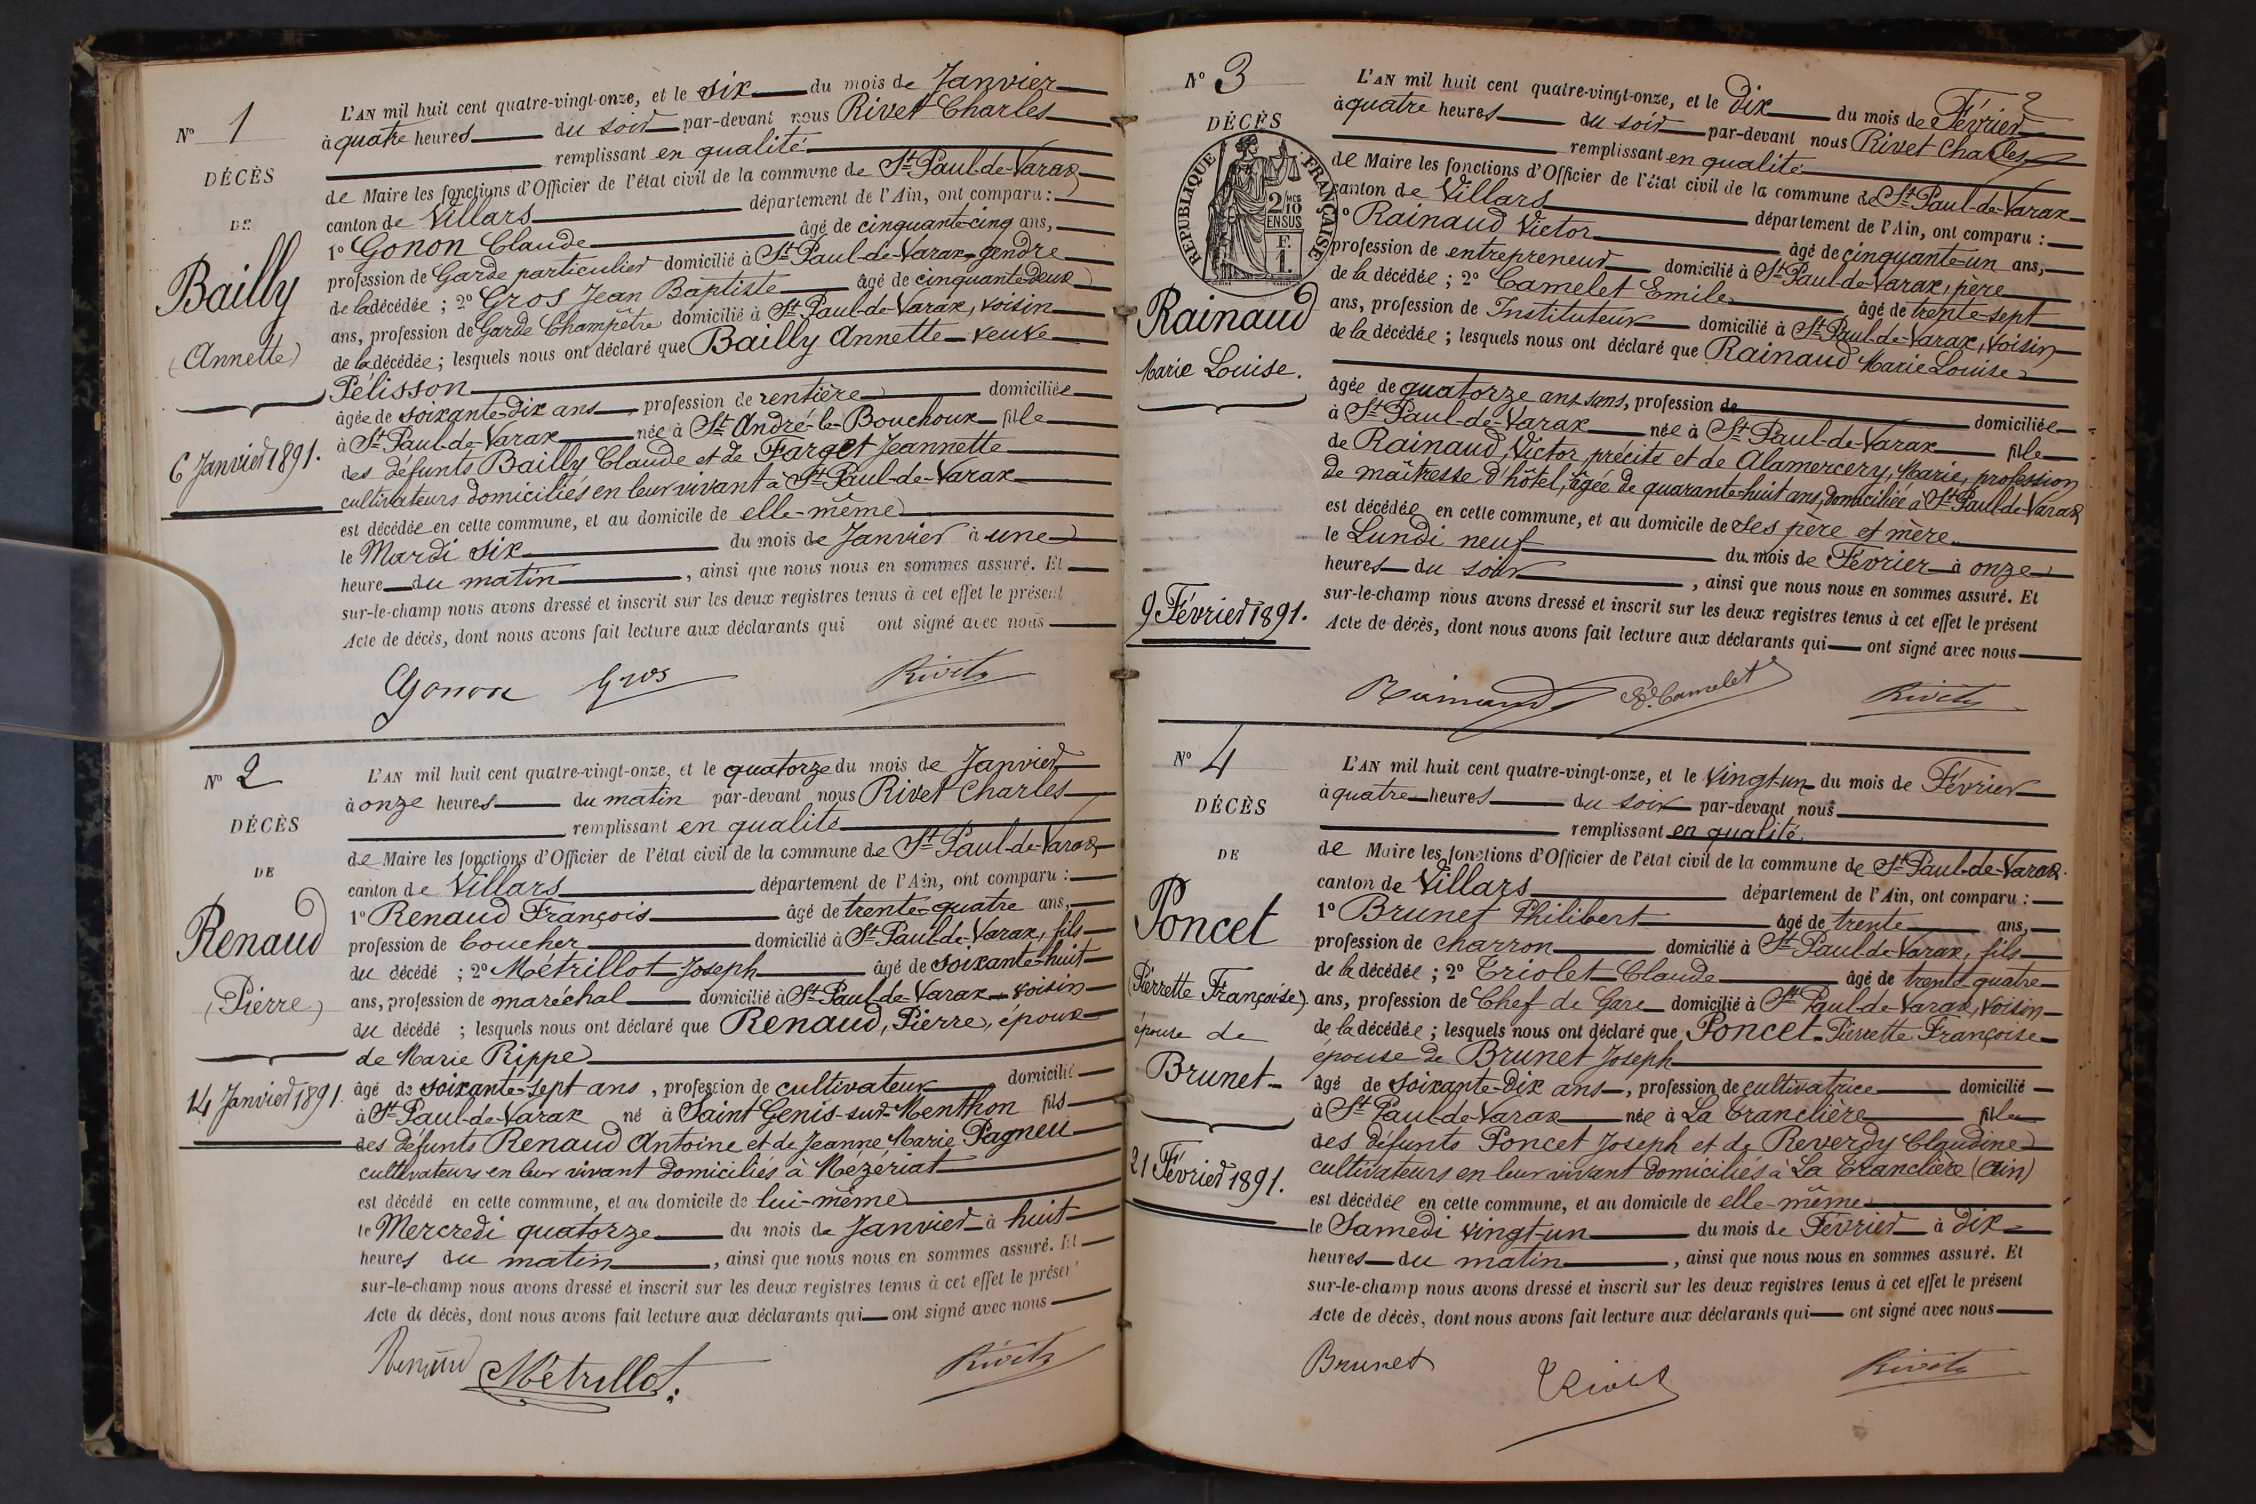 N° 1
DÉCÈS
DE
Bailly
(Annette)
6 Janvier 1891.
L'AN mil huit cent quatre-vingt-onze, et le six du mois de Janvier
à quatre heures du soir par-devant nous Rivet Charles
remplissant en qualité
de Maire les fonctions d'Officier de l'état civil de la commune de St Paul-de-Varax
canton de Villars département de l'Ain, ont comparu :
1° Gonon Claude âgé de cinquante-cinq ans,
profession de Garde particulier domicilié à St Paul-de-Varax, gendre
de la décédée ; 2° Gros Jean Baptiste âgé de cinquante-deux
ans, profession de Garde Champêtre domicilié à St Paul-de-Varax, voisin
de la décédée ; lesquels nous ont déclaré que Bailly Annette veuve
Pélisson
âgée de soixante-dix ans profession de rentière domiciliée
à St Paul-de-Varax née à St André-le-Bouchoux fille
des défunts Bailly Claude et de Farget Jeannette
cultivateurs domiciliés en leur vivant à St Paul-de-Varax
est décédée en cette commune, et au domicile de elle-même
le Mardi six du mois de Janvier à une
heure du matin , ainsi que nous nous en sommes assuré. Et
sur-le-champ nous avons dressé et inscrit sur les deux registres tenus à cet effet le présent
Acte de décès, dont nous avons fait lecture aux déclarants qui ont signé avec nous
Gonon Gros Rivet
N° 2
DÉCÈS
DE
Renaud
(Pierre)
14 Janvier 1891.
L'AN mil huit cent quatre-vingt-onze, et le quatorze du mois de Janvier
à onze heures du matin par-devant nous Rivet Charles
remplissant en qualité
de Maire les fonctions d'Officier de l'état civil de la commune de St Paul-de-Varax
canton de Villars département de l'Ain, ont comparu :
1° Renaud François âgé de trente-quatre ans,
profession de boucher domicilié à St Paul-de-Varax, fils
du décédé ; 2° Métrillot Joseph âgé de soixante-huit
ans, profession de maréchal domicilié à St Paul-de-Varax voisin
du décédé ; lesquels nous ont déclaré que Renaud, Pierre, époux
de Marie Rippe
âgé de soixante-sept ans , profession de cultivateur domicilié
à St Paul-de-Varax né à Saint Genis-sur-Menthon fils
des défunts Renaud Antoine et de Jeanne Marie Pagneu
cultivateurs en leur vivant domiciliés à Mézériat
est décédé en cette commune, et au domicile de lui-même
le Mercredi quatorze du mois de Janvier à huit
heures du matin , ainsi que nous nous en sommes assuré. Et
sur-le-champ nous avons dressé et inscrit sur les deux registres tenus à cet effet le présent
Acte de décès, dont nous avons fait lecture aux déclarants qui ont signé avec nous
Renaud Métrillot Rivet
2
N° 3
DÉCÈS
RÉPUBLIQUE FRANÇAISE
2 MES 10 EN SUS
F. 1.
Rainaud
Marie Louise.
9 Février 1891.
L'AN mil huit cent quatre-vingt-onze, et le dix du mois de Février
à quatre heures du soir par-devant nous Rivet Charles
remplissant en qualité
de Maire les fonctions d'Officier de l'état civil de la commune de St Paul-de-Varax
canton de Villars département de l'Ain, ont comparu :
1° Rainaud Victor âgé de cinquante-un ans,
profession de entrepreneur domicilié à St Paul-de-Varax, père
de la décédée ; 2° Camelet Emile âgé de trente-sept
ans, profession de Instituteur domicilié à St Paul-de-Varax, voisin
de la décédée ; lesquels nous ont déclaré que Rainaud Marie Louise
âgée de quatorze ans sans, profession de domiciliée
à St Paul-de-Varax née à St Paul-de-Varax fille
de Rainaud, Victor précité et de Alamercery, Marie, profession
de maîtresse d'hôtel, âgée de quarante-huit ans, domiciliée à St Paul-de-Varax
est décédée en cette commune, et au domicile de ses père et mère
le Lundi neuf du mois de Février à onze
heures du soir , ainsi que nous nous en sommes assuré. Et
sur-le-champ nous avons dressé et inscrit sur les deux registres tenus à cet effet le présent
Acte de décès, dont nous avons fait lecture aux déclarants qui ont signé avec nous
Rainaud Camelet Rivet
N° 4
DÉCÈS
DE
Poncet
(Pierrette Françoise)
épouse de
Brunet
21 Février 1891.
L'AN mil huit cent quatre-vingt-onze, et le vingt-un du mois de Février
à quatre heures du soir par-devant nous
remplissant en qualité
de Maire les fonctions d'Officier de l'état civil de la commune de St Paul-de-Varax.
canton de Villars département de l'Ain, ont comparu :
1° Brunet Philibert âgé de trente ans,
profession de charron domicilié à St Paul-de-Varax, fils
de la décédée ; 2° Triolet Claude âgé de trente quatre
ans, profession de Chef de Gare domicilié à St Paul-de-Varax, voisin
de la décédée ; lesquels nous ont déclaré que Poncet Pierrette Françoise
épouse de Brunet Joseph
âgé de soixante-dix ans , profession de cultivatrice domicilié
à St Paul-de-Varax née à La Tranclière fille
des défunts Poncet Joseph et de Reverdy Claudine
cultivateurs en leur vivant domiciliés à La Tranclière (Ain)
est décédée en cette commune, et au domicile de elle-même
le Samedi vingt-un du mois de Février à dix
heures du matin , ainsi que nous nous en sommes assuré. Et
sur-le-champ nous avons dressé et inscrit sur les deux registres tenus à cet effet le présent
Acte de décès, dont nous avons fait lecture aux déclarants qui ont signé avec nous
Brunet Triolet Rivet